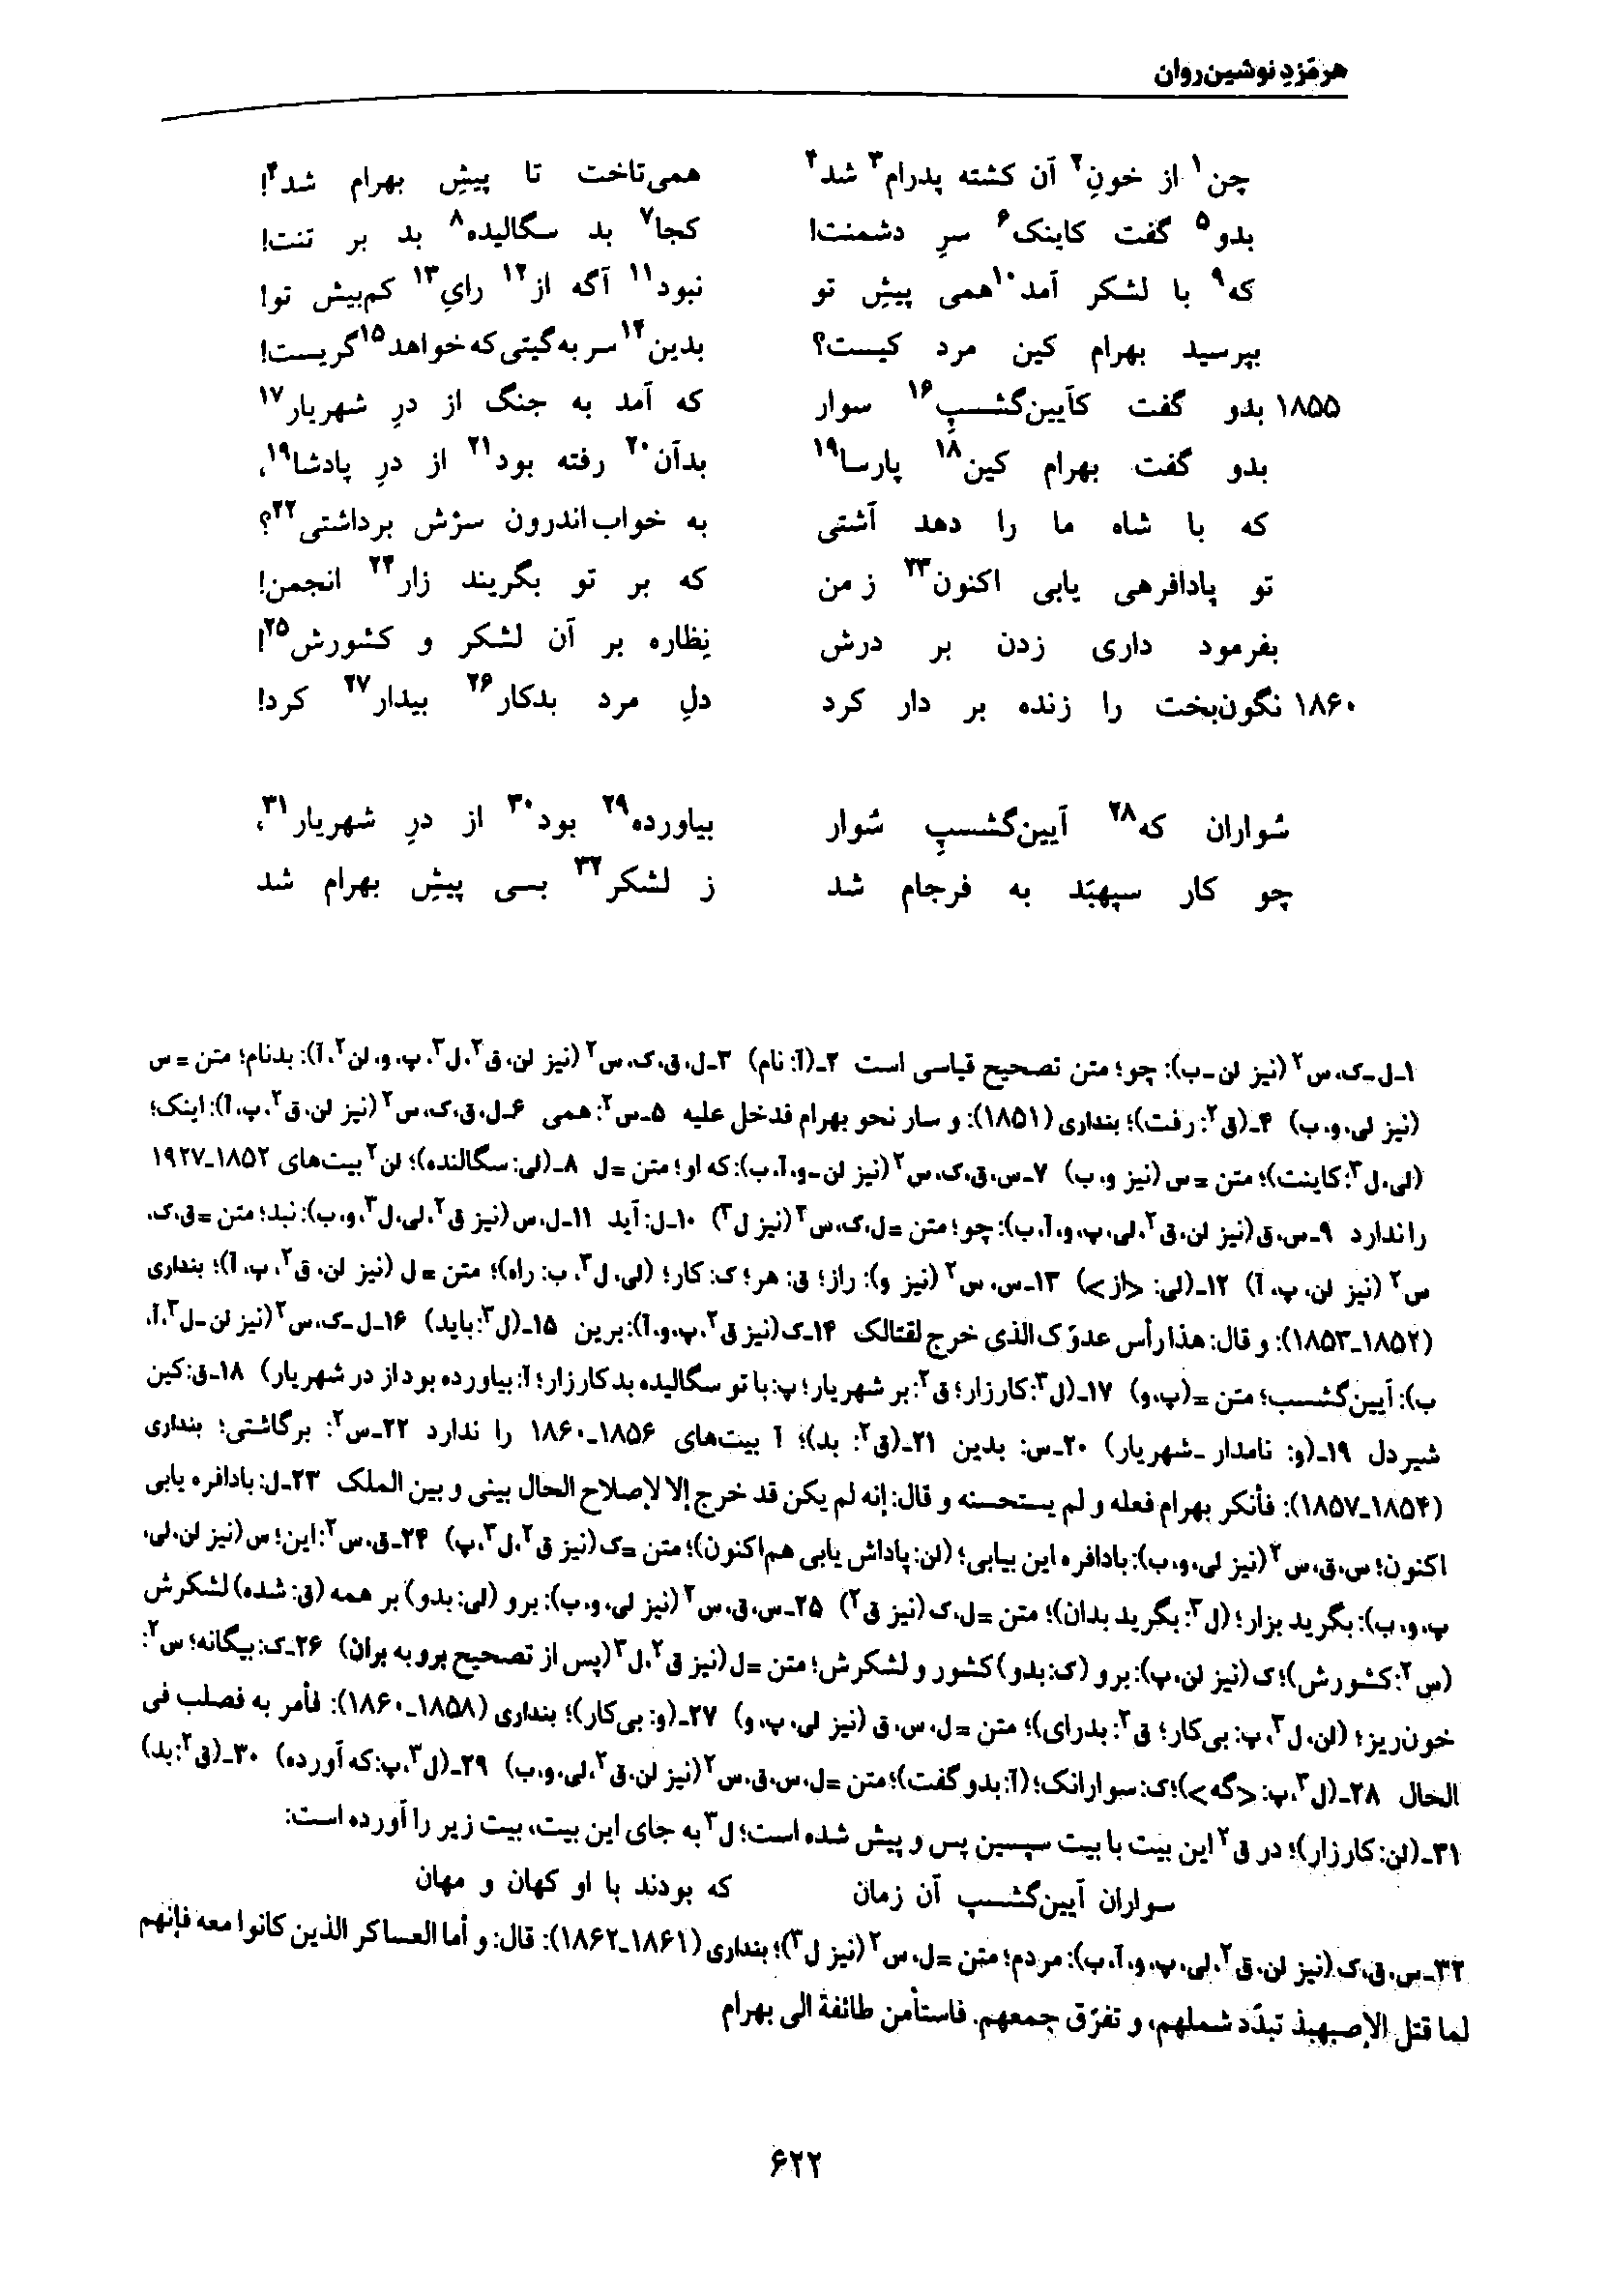 هرمّزدِ نوشین‌روان
چن۱ از خونِ۲ آن کشته پدرام۳ شد۴ همی‌تاخت تا پیشِ بهرام شد۴!
بدو۵ گفت کاینک۶ سرِ دشمنت! کجا۷ بد سگالیده۸ بد بر تنت!
که۹ با لشکر آمد۱۰ همی پیشِ تو نبود۱۱ آگه از۱۲ رایِ۱۳ کم‌بیش تو!
بپرسید بهرام کین مرد کیست؟ بدین۱۴ سر به‌گیتی که خواهد۱۵ گریست!
۱۸۵۵ بدو گفت کآیین‌گشسپِ۱۶ سوار که آمد به جنگ از درِ شهریار۱۷
بدو گفت بهرام کین۱۸ پارسا۱۹ بدآن۲۰ رفته بود۲۱ از درِ پادشا۱۹،
که با شاه ما را دهد آشتی به خواب‌اندرون سرْش برداشتی۲۲؟
تو پادافرهی یابی اکنون۲۳ ز من که بر تو بگریند زار۲۴ انجمن!
بفرمود داری زدن بر درش نِظاره بر آن لشکر و کشورش۲۵!
۱۸۶۰ نگون‌بخت را زنده بر دار کرد دلِ مرد بدکار۲۶ بیدار۲۷ کرد!
سُواران که۲۸ آیین‌گشسپِ سُوار بیاورده۲۹ بود۳۰ از درِ شهریار۳۱،
چو کار سپهبَد به فرجام شد ز لشکر۳۲ بسی پیشِ بهرام شد
۱ـ ل ـ ک، س۲ (نیز لن ـ ب): چو؛ متن تصحیح قیاسی است ۲ـ (آ: نام) ۳ـ ل، ق، ک، س۲ (نیز لن، ق۲، ل۳، پ، و، لن۲، آ): بدنام؛ متن = س
(نیز لی، و، ب) ۴ـ (ق۲: رفت)؛ بنداری (۱۸۵۱): و سار نحو بهرام فدخل علیه ۵ـ س۲: همی ۶ـ ل، ق، ک، س۲ (نیز لن، ق۲، پ، آ): اینک؛
(لی، ل۳: کاینت)؛ متن = س (نیز و، ب) ۷ـ س، ق، ک، س۲ (نیز لن ـ و، آ، ب): که او؛ متن = ل ۸ـ (لی: سگالنده)؛ لن۲ بیت‌های ۱۸۵۲ـ۱۹۲۷
را ندارد ۹ـ س، ق (نیز لن، ق۲، لی، پ، و، آ، ب): چو؛ متن = ل، ک، س۲ (نیز ل۳) ۱۰ـ ل: آید ۱۱ـ ل، س (نیز ق۲، لی، ل۳، و، ب): نبد؛ متن = ق، ک،
س۲ (نیز لن، پ، آ) ۱۲ـ (لی: <از>) ۱۳ـ س، س۲ (نیز و): راز؛ ق: هر؛ ک: کار؛ (لی، ل۳، ب: راه)؛ متن = ل (نیز لن، ق۲، پ، آ)؛ بنداری
(۱۸۵۲ـ۱۸۵۳): و قال: هذا رأس عدوّک الذی خرج لقتالک ۱۴ـ ک (نیز ق۲، پ، و، آ): برین ۱۵ـ (ل۳: باید) ۱۶ـ ل ـ ک، س۲ (نیز لن ـ ل۳، آ،
ب): آیین‌گشسب؛ متن = (پ، و) ۱۷ـ (ل۳: کارزار؛ ق۲: بر شهریار؛ پ: با تو سگالیده بد کارزار؛ آ: بیاورده بود از در شهریار) ۱۸ـ ق: کین
شیردل ۱۹ـ (و: نامدار ـ شهریار) ۲۰ـ س: بدین ۲۱ـ (ق۲: بد)؛ آ بیت‌های ۱۸۵۶ـ۱۸۶۰ را ندارد ۲۲ـ س۲: برگاشتی؛ بنداری
(۱۸۵۴ـ۱۸۵۷): فأنکر بهرام فعله و لم یستحسنه و قال: إنه لم یکن قد خرج إلا لإصلاح الحال بینی و بین الملک ۲۳ـ ل: بادافره یابی
اکنون؛ س، ق، س۲ (نیز لی، و، ب): بادافره این بیابی؛ (لن: پاداش یابی هم‌اکنون)؛ متن = ک (نیز ق۲، ل۳، پ) ۲۴ـ ق، س۲: این؛ س (نیز لن، لی،
پ، و، ب): بگرید بزار؛ (ل۳: بگرید بدان)؛ متن = ل، ک (نیز ق۲) ۲۵ـ س، ق، س۲ (نیز لی، و، ب): برو (لی: بدو) بر همه (ق: شده) لشکرش
(س۲: کشورش)؛ ک (نیز لن، پ): برو (ک: بدو) کشور و لشکرش؛ متن = ل (نیز ق۲، ل۳ (پس از تصحیح برو به بران) ۲۶ـ ک: بیگانه؛ س۲:
خون‌ریز؛ (لن، ل۳، پ: بی‌کار؛ ق۲: بدرای)؛ متن = ل، س، ق (نیز لی، پ، و) ۲۷ـ (و: بی‌کار)؛ بنداری (۱۸۵۸ـ۱۸۶۰): فأمر به فصلب فی
الحال ۲۸ـ (ل۳، پ: <گه>)؛ ک: سوارانک؛ (آ: بدو گفت)؛ متن = ل، س، ق، س۲ (نیز لن، ق۲، لی، و، ب) ۲۹ـ (ل۳، پ: که آورده) ۳۰ـ (ق۲: بد)
۳۱ـ (لن: کارزار)؛ در ق۲ این بیت با بیت سپسین پس و پیش شده است؛ ل۳ به جای این بیت، بیت زیر را آورده است:
سواران آیین‌گشسپ آن زمان که بودند با او کهان و مهان
۳۲ـ س، ق، ک (نیز لن، ق۲، لی، پ، و، آ، ب): مردم؛ متن = ل، س۲ (نیز ل۳)؛ بنداری (۱۸۶۱ـ۱۸۶۲): قال: و أما العساکر الذین کانوا معه فإنهم
لما قتل الإصبهبذ تبدّد شملهم، و تفرّق جمعهم. فاستأمن طائفة الی بهرام
۶۲۲